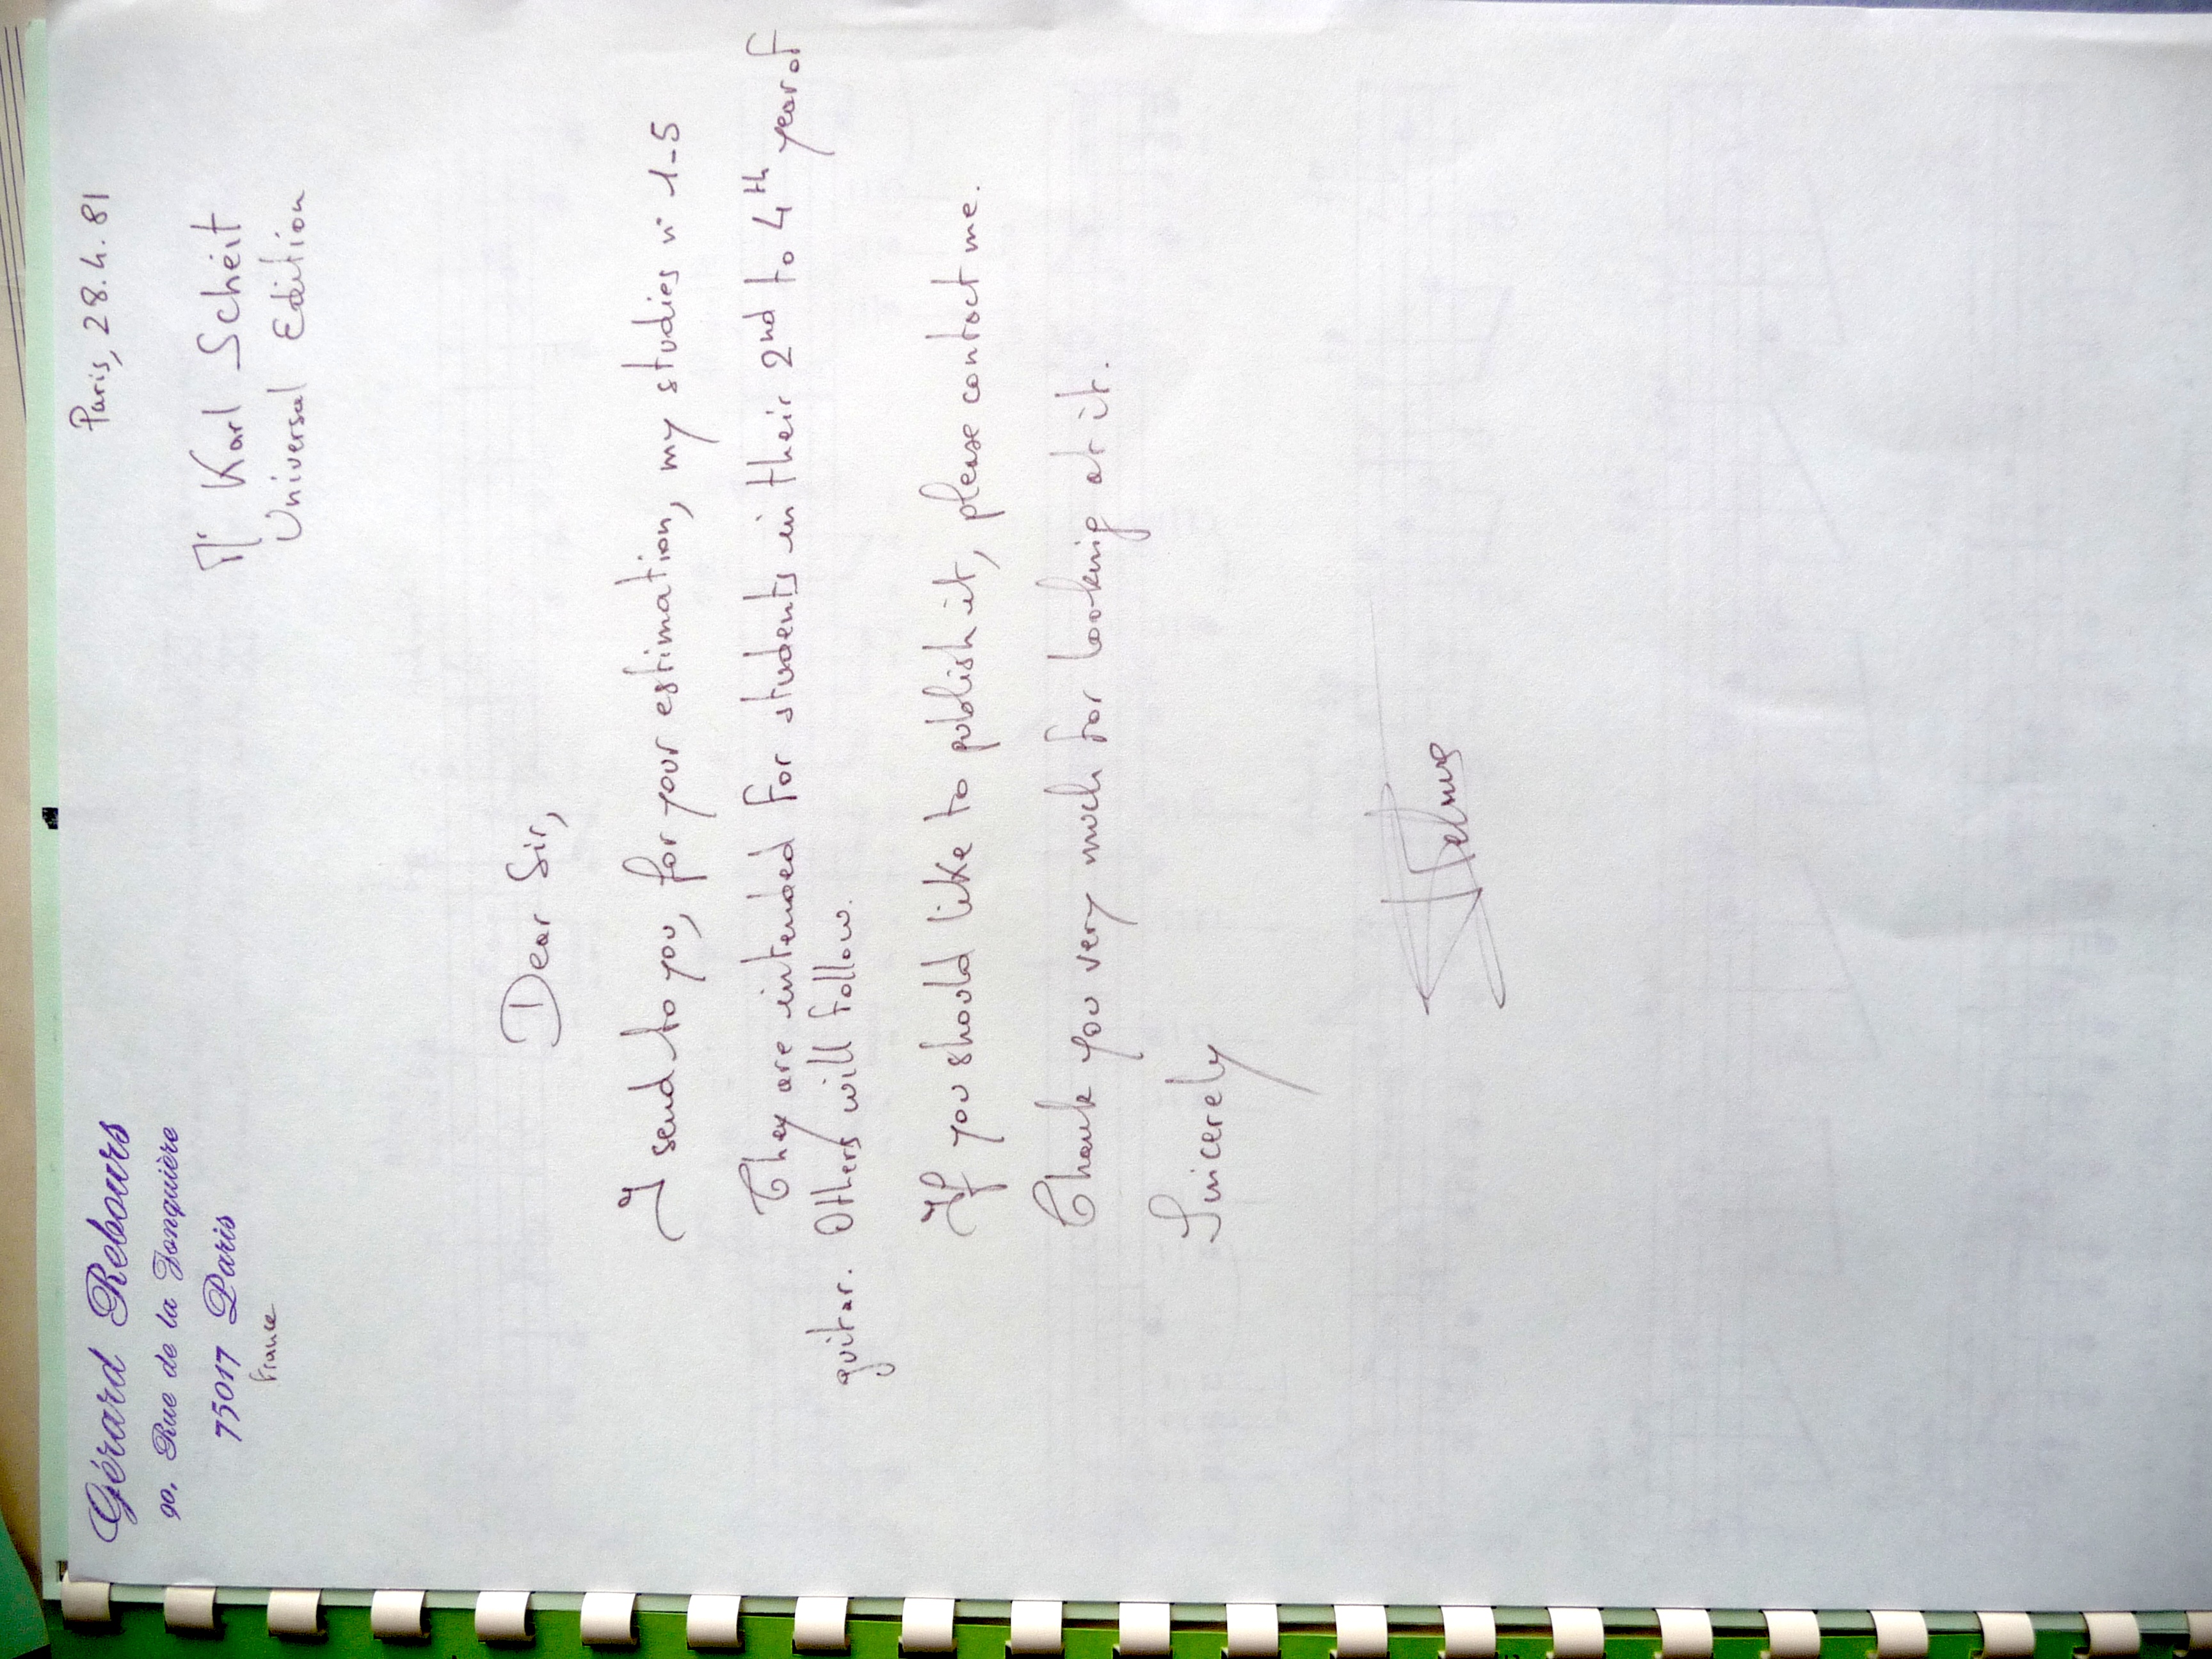 Gérard Rebours
90, Rue de la Jonquière
75017 Paris
France
Paris, 28.4.81
Mr Karl Scheit
Universal Edition
Dear Sir,
I send to you, for your estimation, my studies n° 1-5
They are intended for students in their 2nd to 4th year of
guitar. Others will follow.
If you should like to publish it, please contact me.
Thank you very much for looking at it.
Sincerely